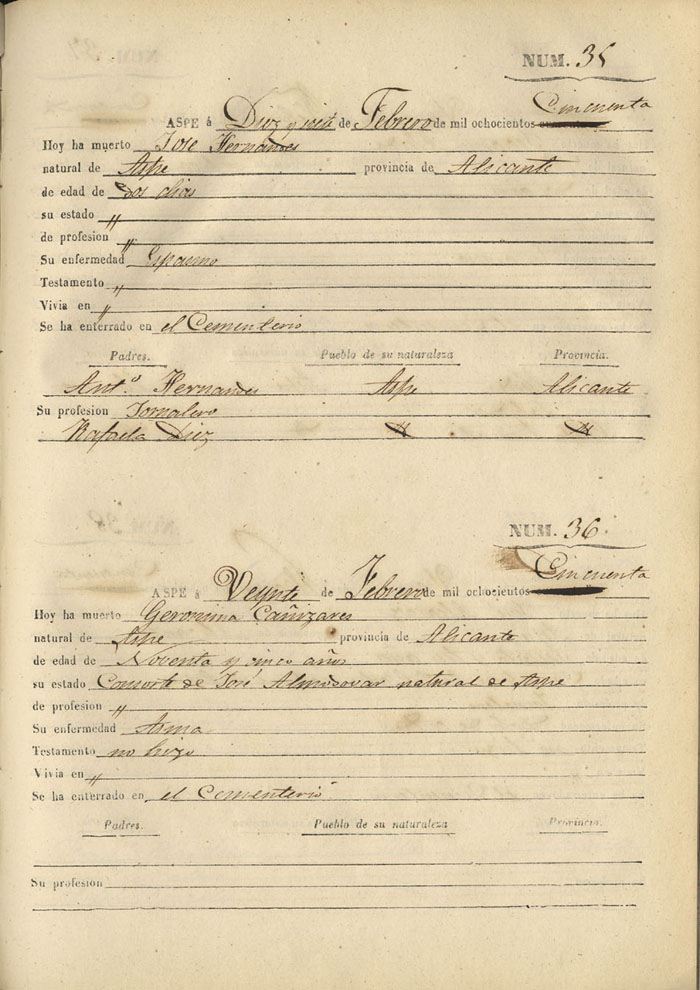 NUM. 35
Cincuenta
ASPE á Diez y siete de Febrero de mil ochocientos
Hoy ha muerto José Hernandes
natural de Aspe provincia de Alicante
de edad de dos dias
su estado "
de profesion "
Su enfermedad Espasmo
Testamento "
Vivia en "
Se ha enterrado en el Cementerio
Padres. Pueblo de su naturaleza Provincia.
Antº Hernandes Aspe Alicante
Su profesion Jornalero
Rafaela Diez
NUM. 36
Cincuenta
ASPE á Veynte de Febrero de mil ochocientos
Hoy ha muerto Geronima Cañizares
natural de Aspe provincia de Alicante
de edad de Noventa y cinco años
su estado Consorte de José Almodovar natural de Aspe
de profesion "
Su enfermedad Asma
Testamento no hizo
Vivia en "
Se ha enterrado en el Cementerio
Padres. Pueblo de su naturaleza Provincia.
Su profesion